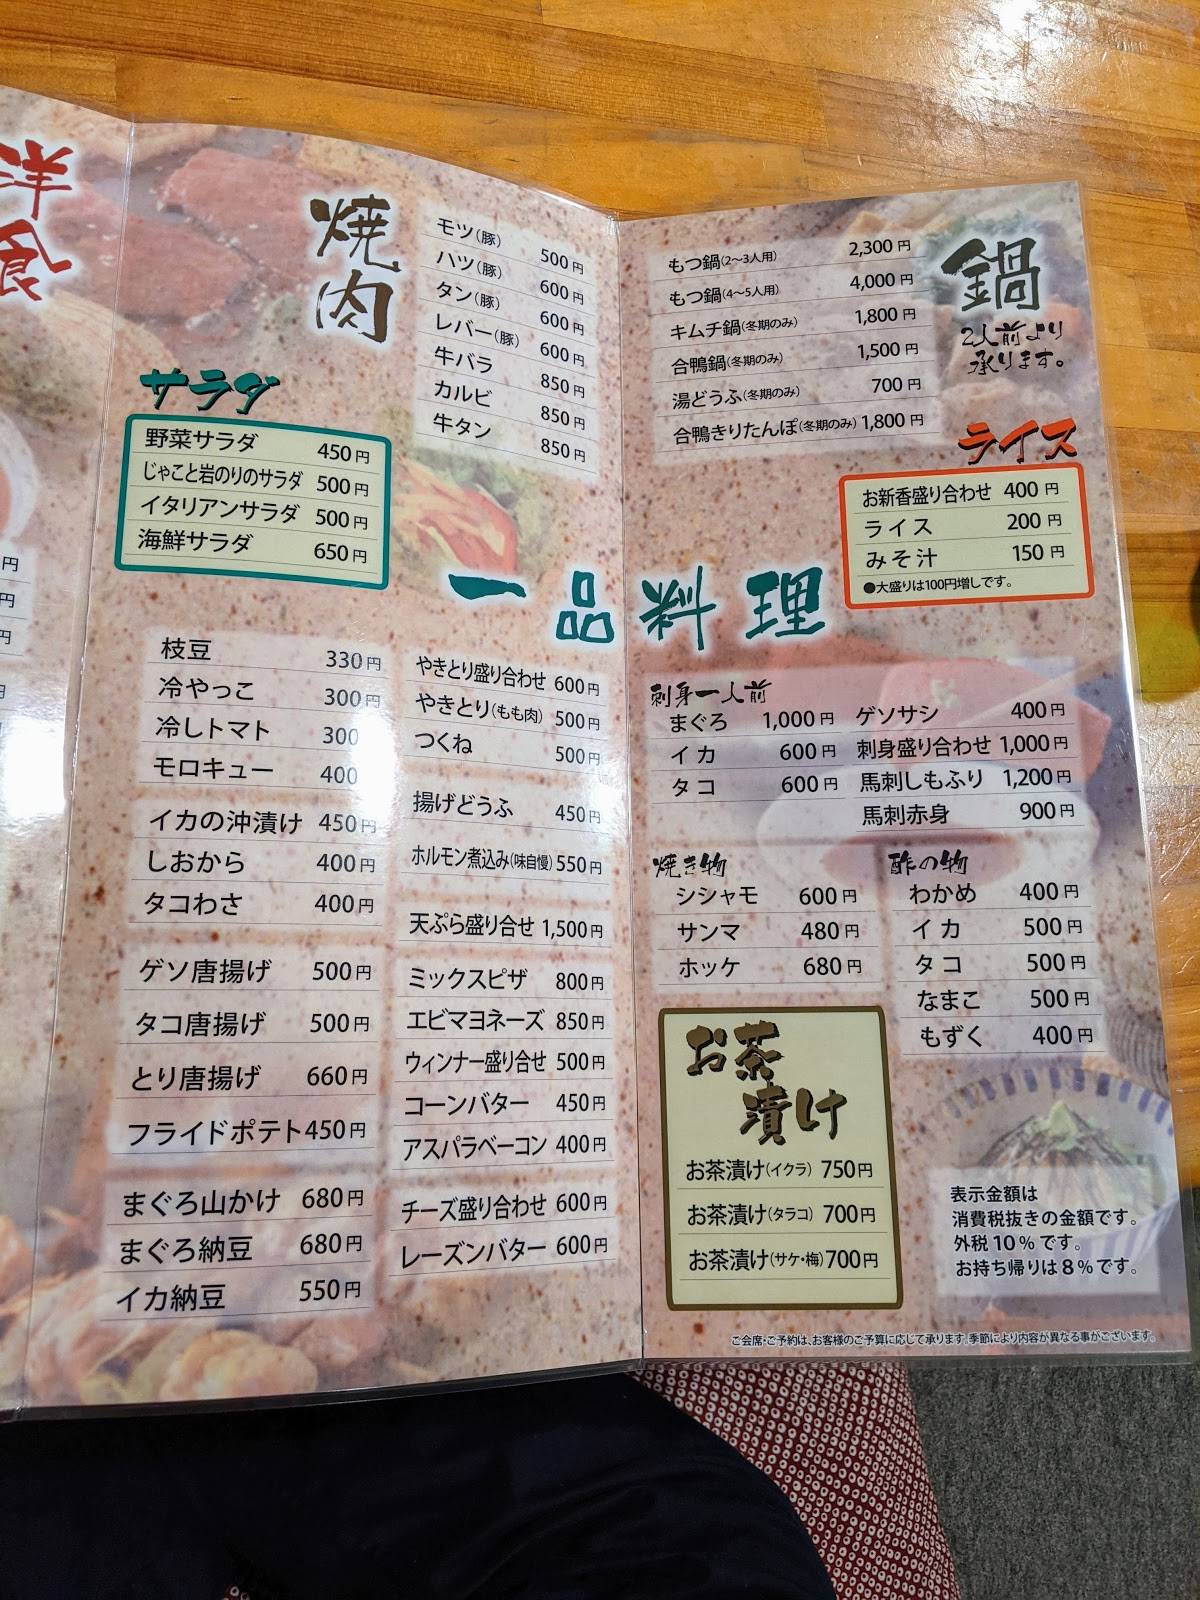 洋食
円
円
円
焼肉
モツ(豚) 500円
ハツ(豚) 600円
タン(豚) 600円
レバー(豚) 600円
牛バラ 850円
カルビ 850円
牛タン 850円
サラダ
野菜サラダ 450円
じゃこと岩のりのサラダ 500円
イタリアンサラダ 500円
海鮮サラダ 650円
鍋
2人前より
承ります。
もつ鍋(2〜3人用) 2,300円
もつ鍋(4〜5人用) 4,000円
キムチ鍋(冬期のみ) 1,800円
合鴨鍋(冬期のみ) 1,500円
湯どうふ(冬期のみ) 700円
合鴨きりたんぽ(冬期のみ) 1,800円
ライス
お新香盛り合わせ 400円
ライス 200円
みそ汁 150円
●大盛りは100円増しです。
一品料理
枝豆 330円
冷やっこ 300円
冷しトマト 300
モロキュー 400
イカの沖漬け 450円
しおから 400円
タコわさ 400円
ゲソ唐揚げ 500円
タコ唐揚げ 500円
とり唐揚げ 660円
フライドポテト 450円
まぐろ山かけ 680円
まぐろ納豆 680円
イカ納豆 550円
やきとり盛り合わせ 600円
やきとり(もも肉) 500円
つくね 500円
揚げどうふ 450円
ホルモン煮込み(味自慢) 550円
天ぷら盛り合せ 1,500円
ミックスピザ 800円
エビマヨネーズ 850円
ウィンナー盛り合せ 500円
コーンバター 450円
アスパラベーコン 400円
チーズ盛り合わせ 600円
レーズンバター 600円
刺身一人前
まぐろ 1,000円
イカ 600円
タコ 600円
ゲソサシ 400円
刺身盛り合わせ 1,000円
馬刺しもふり 1,200円
馬刺赤身 900円
焼き物
シシャモ 600円
サンマ 480円
ホッケ 680円
酢の物
わかめ 400円
イカ 500円
タコ 500円
なまこ 500円
もずく 400円
お茶漬け
お茶漬け(イクラ) 750円
お茶漬け(タラコ) 700円
お茶漬け(サケ・梅) 700円
表示金額は
消費税抜きの金額です。
外税10%です。
お持ち帰りは8%です。
ご会席・ご予約は、お客様のご予算に応じて承ります。季節により内容が異なる事がございます。